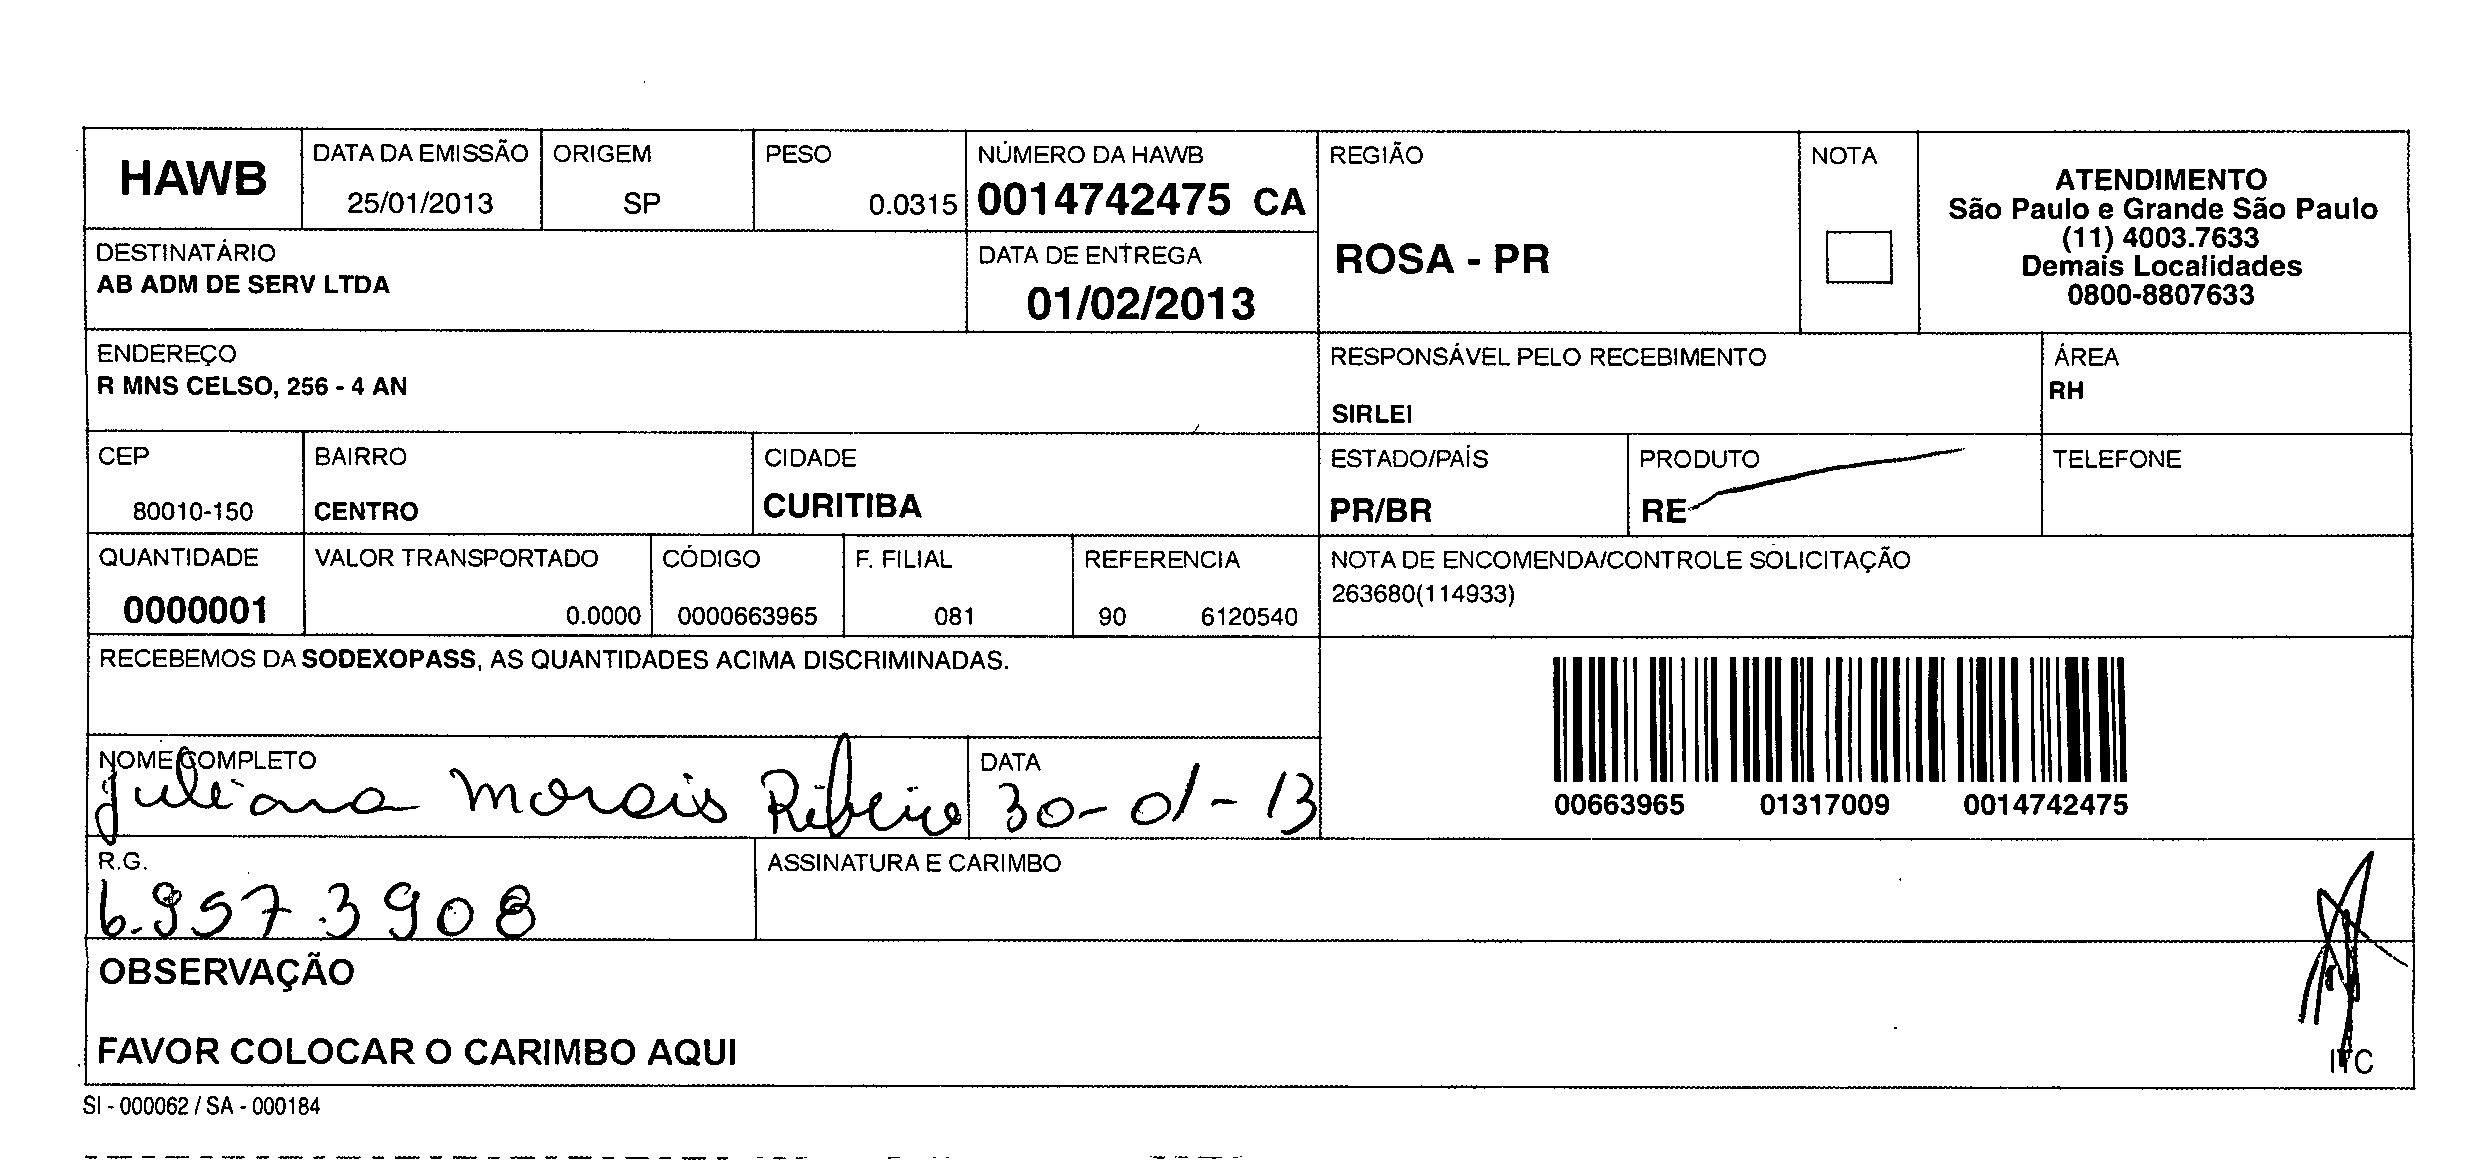 HAWB
DATA DA EMISSÃO
25/01/2013
ORIGEM
SP
PESO
0.0315
NÚMERO DA HAWB
0014742475 CA
REGIÃO
ROSA - PR
NOTA
ATENDIMENTO
São Paulo e Grande São Paulo
(11) 4003.7633
Demais Localidades
0800-8807633
DESTINATÁRIO
AB ADM DE SERV LTDA
DATA DE ENTREGA
01/02/2013
ENDEREÇO
R MNS CELSO, 256 - 4 AN
RESPONSÁVEL PELO RECEBIMENTO
SIRLEI
ÁREA
RH
CEP
80010-150
BAIRRO
CENTRO
CIDADE
CURITIBA
ESTADO/PAÍS
PR/BR
PRODUTO
RE
TELEFONE
QUANTIDADE
0000001
VALOR TRANSPORTADO
0.0000
CÓDIGO
0000663965
F. FILIAL
081
REFERENCIA
90 6120540
NOTA DE ENCOMENDA/CONTROLE SOLICITAÇÃO
263680(114933)
RECEBEMOS DA SODEXOPASS, AS QUANTIDADES ACIMA DISCRIMINADAS.
00663965 01317009 0014742475
NOME COMPLETO
Juliana Morais Ribeiro
DATA
30-01-13
R.G.
6.957.3908
ASSINATURA E CARIMBO
OBSERVAÇÃO
FAVOR COLOCAR O CARIMBO AQUI
ITC
SI - 000062 / SA - 000184